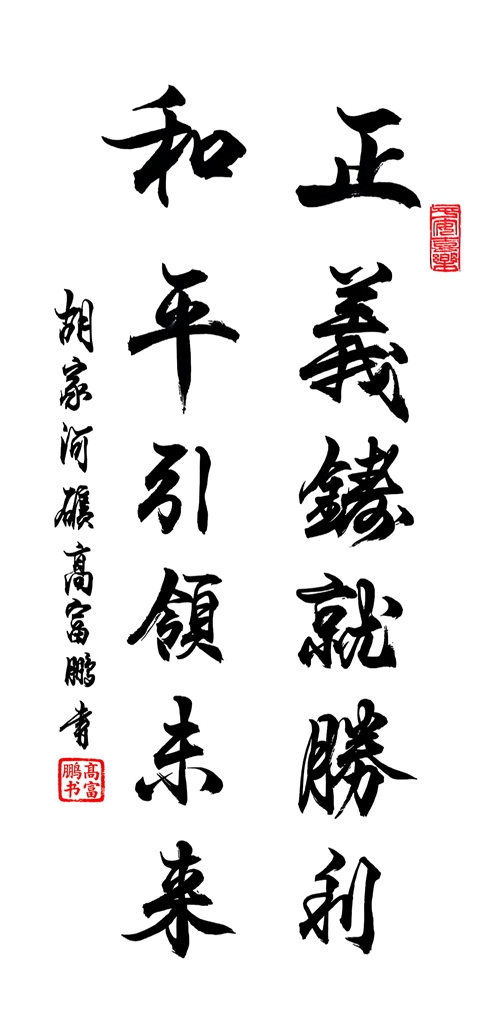 正義鑄就勝利
和平引領未来
胡家河礦高富鵬書
高富
鹏书